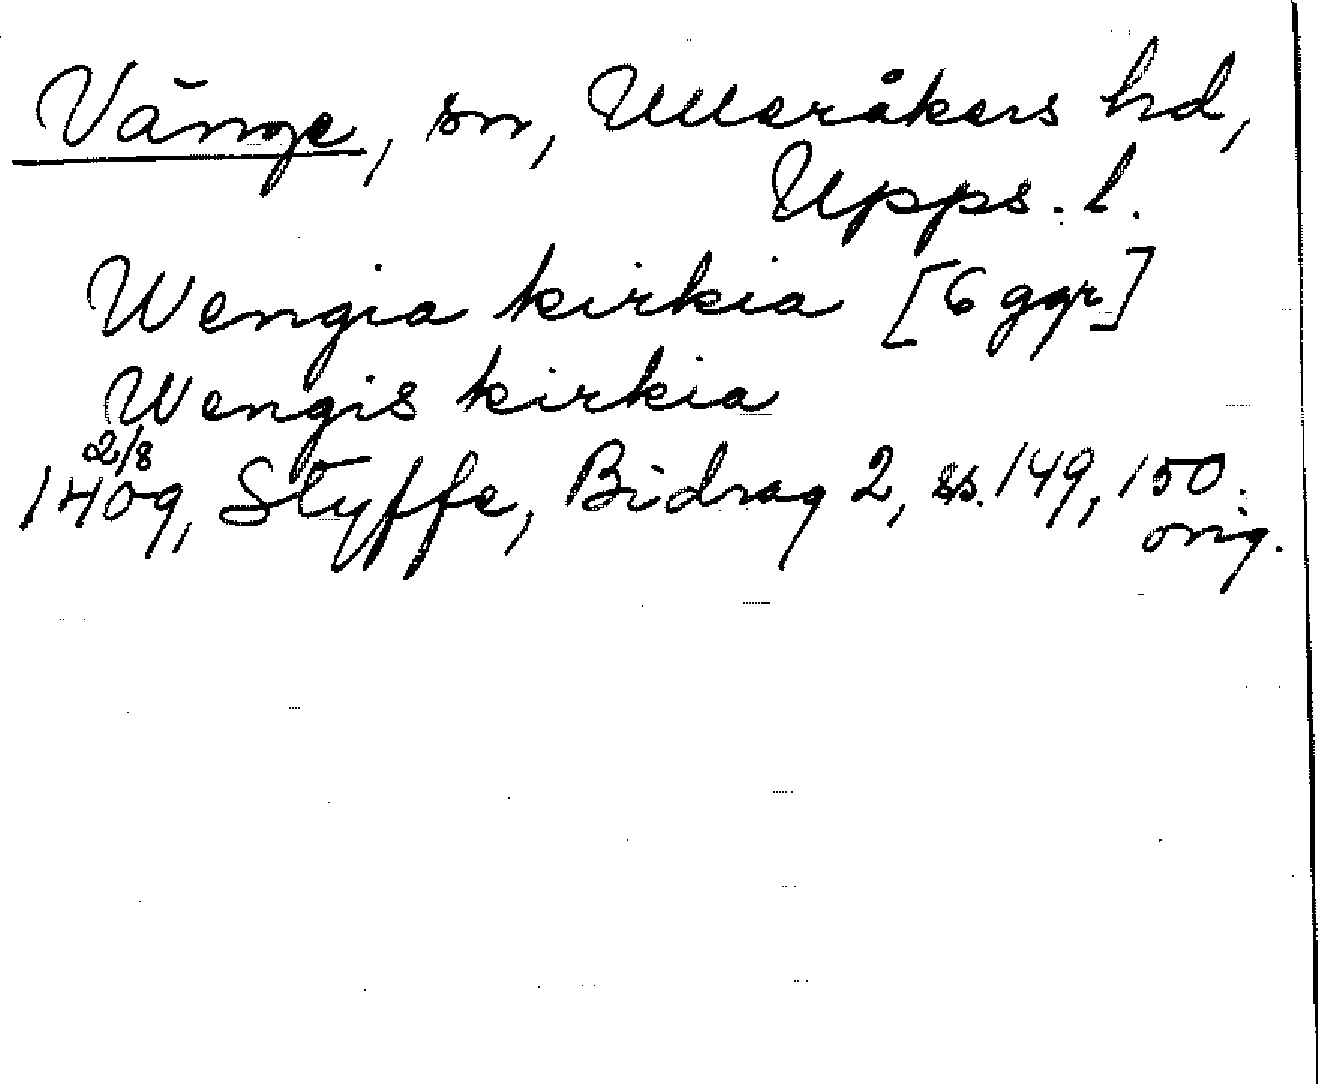 Vänge, sn, Ulleråkers hd,
Upps. l.
Wengia kirkia [6 ggr]
Wengis kirkia
2/8
1409, Styffe, Bidrag 2, ss. 149, 150.
orig.